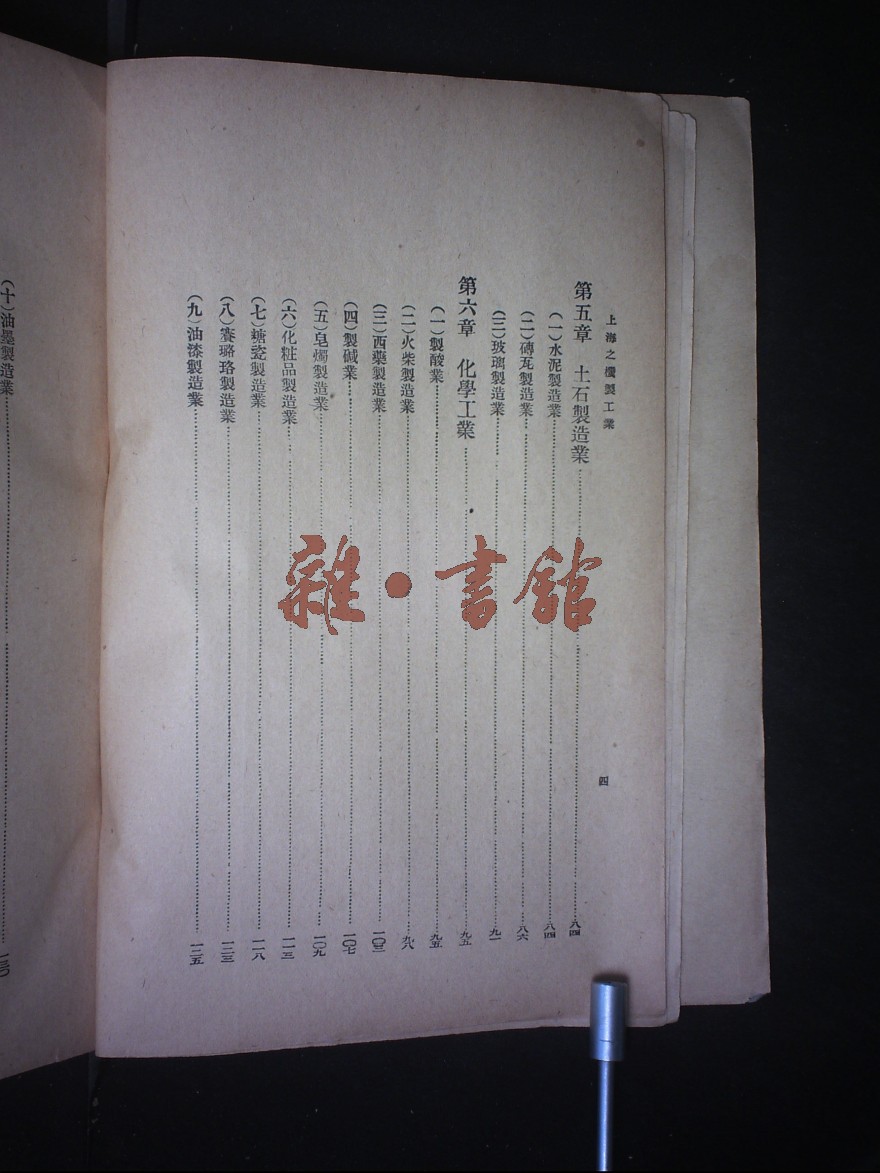 上海之機製工業
四
第五章 土石製造業……八四
(一)水泥製造業……八四
(二)磚瓦製造業……八六
(三)玻璃製造業……九一
第六章 化學工業……九五
(一)製酸業……九五
(二)火柴製造業……九八
(三)西藥製造業……一〇三
(四)製碱業……一〇七
(五)皂燭製造業……一〇九
(六)化粧品製造業……一一三
(七)搪瓷製造業……一一八
(八)賽璐珞製造業……一二三
(九)油漆製造業……一二五
(十)油墨製造業……一三〇
雜·書館